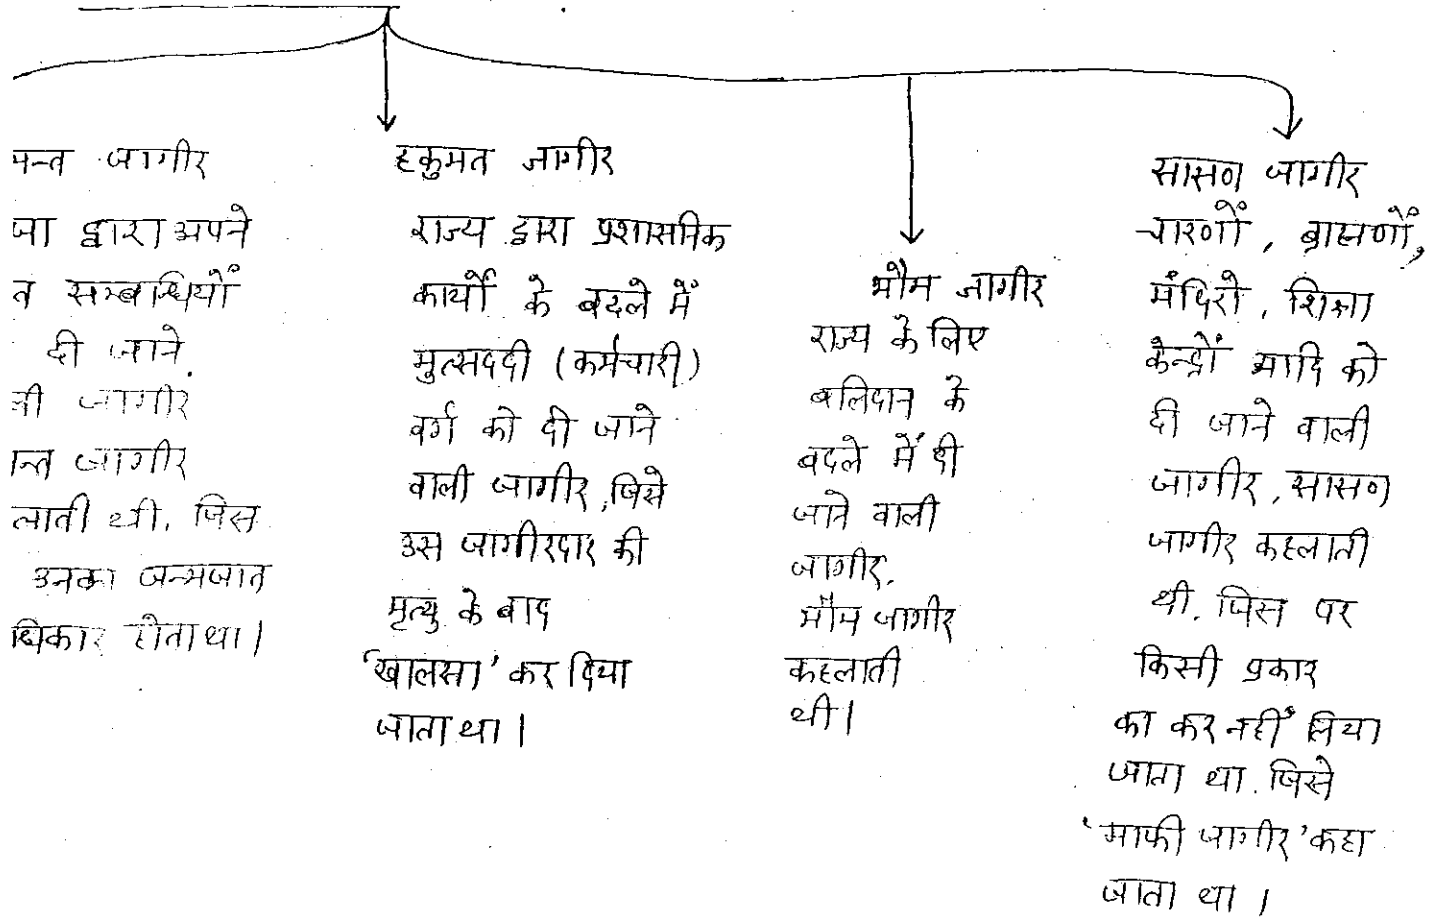 मन्त जागीर
जा द्वारा अपने
त सम्बन्धियों
दी जाने
ली जागीर
मन्त जागीर
लाती थी, जिस
उनका जन्मजात
धिकार होता था।
हकुमत जागीर
राज्य द्वारा प्रशासनिक
कार्यों के बदले में
मुत्सददी (कर्मचारी)
वर्ग को दी जाने
वाली जागीर, जिसे
उस जागीरदार की
मृत्यु के बाद
'खालसा' कर दिया
जाता था।
भौम जागीर
राज्य के लिए
बलिदान के
बदले में दी
जाने वाली
जागीर,
भौम जागीर
कहलाती
थी।
सासण जागीर
चारणों, ब्राह्मणों,
मंदिरो, शिक्षा
केन्द्रों आदि को
दी जाने वाली
जागीर, सासण
जागीर कहलाती
थी, जिस पर
किसी प्रकार
का कर नहीं लिया
जाता था. जिसे
'माफी जागीर' कहा
जाता था।